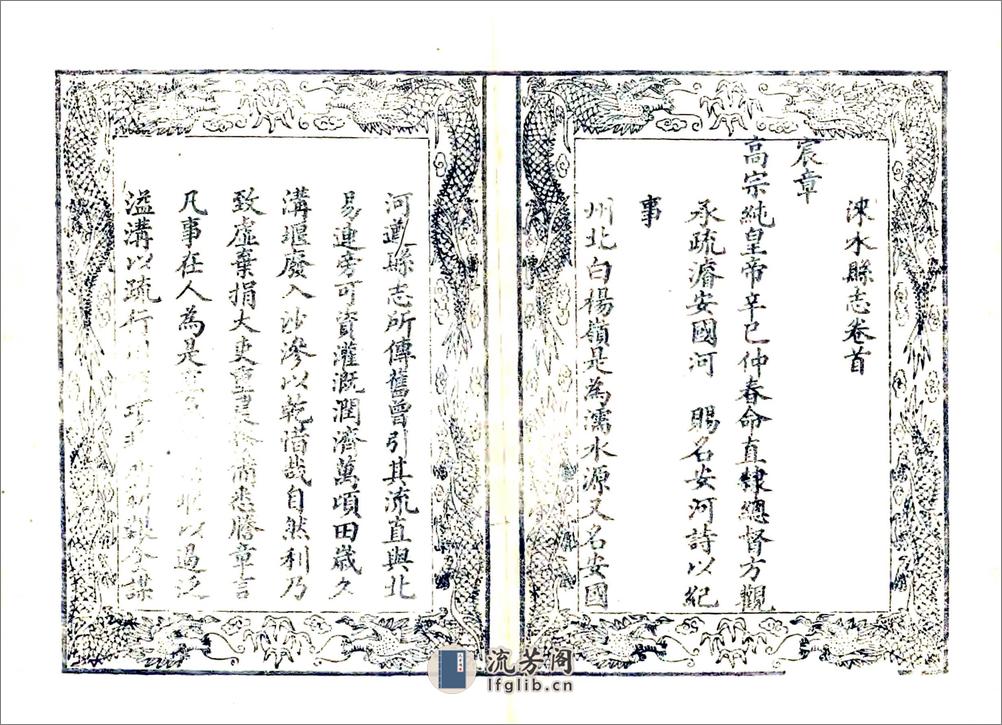 涞水縣志卷首
宸章
高宗純皇帝辛巳仲春命直隸總督方觀
承疏濬安國河　賜名安河詩以紀
事
州北白楊嶺是為濡水源又名安國
河道縣志所傳舊曾引其流直與北
易連旁可資灌溉潤濟萬頃田歲久
溝堰廢入沙滲以乾惜哉自然利乃
致虛棄捐大吏重
悉膽章言
凡事在人為是
以過泛
溢溝以疏行以
今謀
流芳阁
lfglib.cn